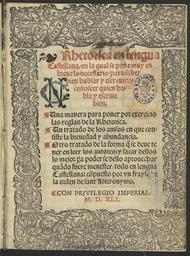 Rhetorica en lengua
Castellana en la qual se pone muy en
breue lo necessario para saber
bien hablar y escreuir: y
conoscer quien ha-
bla y escriue
bien.
Una manera para poner por exercicio
las reglas de la Rhetorica.
Un tratado de los auisos en que con-
siste la breuedad y abundancia.
Otro tratado de la forma que se deue te-
ner en leer los autores: y sacar dellos
lo mejor para poder se dello aprouechar
quando fuere menester. todo en lengua
Castellana: compuesto por vn frayle de
la orden de sant Hieronymo.
CON PRIVILEGIO IMPERIAL.
M. D. XLI.